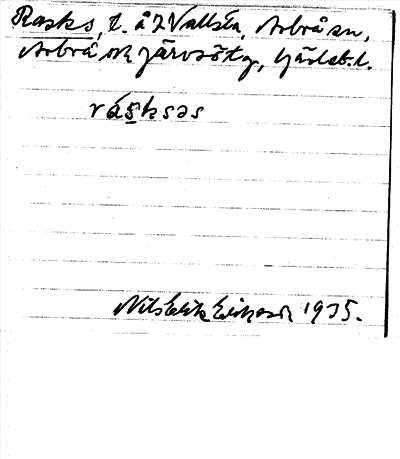 Rasks, t. å 7 Vallsta, Arbrå sn,
Arbrå ok Järvsö tg, Gävleb. l.
ráskses
Nils Erik Eriksson 1935.